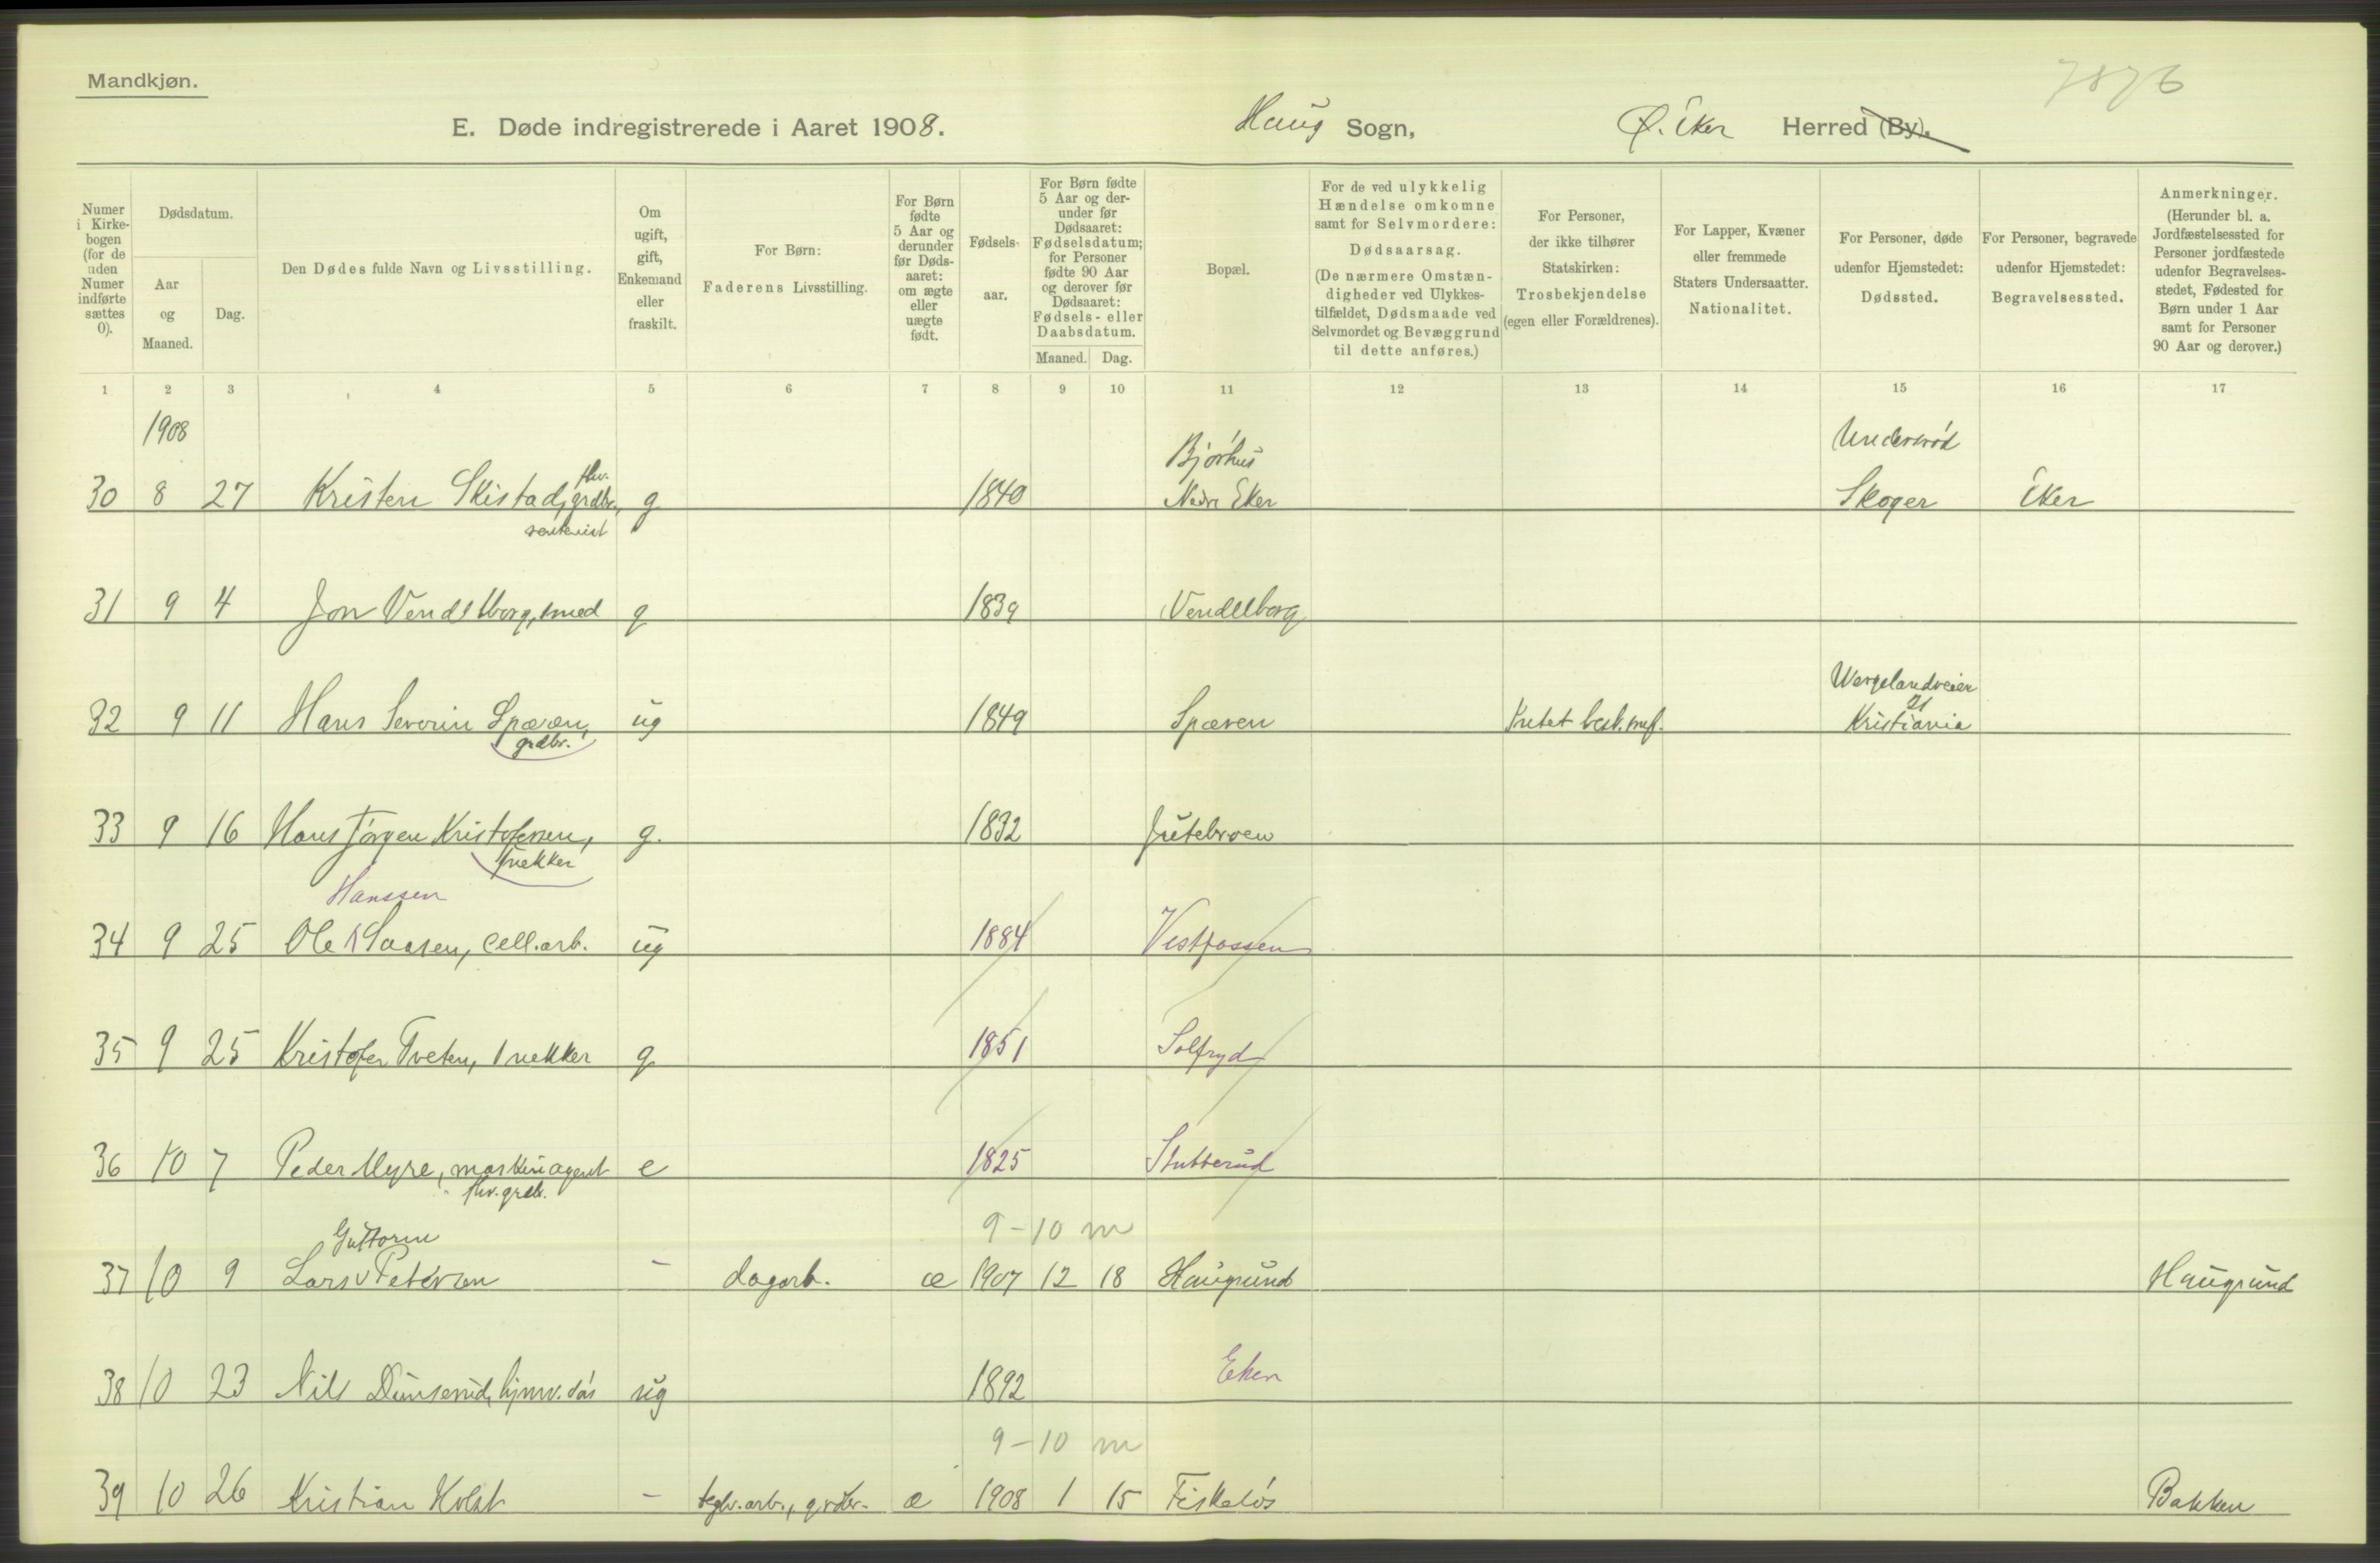 Mandkjøn.
7876
E. Døde indregistrerede i Aaret 1908. Haug Sogn, Ø. Eker Herred (By).
Numer i Kirkebogen (for de uden Numer indførte sættes 0).
Dødsdatum.
Aar og Maaned.
Dag.
Den Dødes fulde Navn og Livsstilling.
Om ugift, gift, Enkemand eller fraskilt.
For Børn: Faderens Livsstilling.
For Børn fødte 5 Aar og derunder før Dødsaaret: om ægte eller uægte født.
Fødselsaar.
For Børn fødte 5 Aar og derunder før Dødsaaret: Fødselsdatum; for Personer fødte 90 Aar og derover før Dødsaaret: Fødsels- eller Daabsdatum.
Maaned. Dag.
Bopæl.
For de ved ulykkelig Hændelse omkomne samt for Selvmordere: Dødsaarsag. (De nærmere Omstændigheder ved Ulykkestilfældet, Dødsmaade ved Selvmordet og Bevæggrund til dette anføres.)
For Personer, der ikke tilhører Statskirken: Trosbekjendelse (egen eller Forældrenes).
For Lapper, Kvæner eller fremmede Staters Undersaatter. Nationalitet.
For Personer, døde udenfor Hjemstedet: Dødssted.
For Personer, begravede udenfor Hjemstedet: Begravelsessted.
Anmerkninger. (Herunder bl. a. Jordfæstelsessted for Personer jordfæstede udenfor Begravelsesstedet, Fødested for Børn under 1 Aar samt for Personer 90 Aar og derover.)
1 2 3 4 5 6 7 8 9 10 11 12 13 14 15 16 17
1908
30 8 27 Kristen Skistad, fhv. grdbr., g 1840 Bjørhus Nedre Eker Skoger Eker
31 9 4 Jon Vendelborg, smed g 1839 Vendelborg
Wergelandveien
21
32 9 11 Hans Severin Spæren, ug 1849 Spæren Kristiania
grdbr.
33 9 16 Hans Jørgen Kristofersen, g. 1832 Jutebroen
snekker
Hanssen
34 9 25 Ole Saasen, cell.arb. ug 1884 Vestfossen
35 9 25 Kristofer Tveten, snekker g 1851 Solfryd
36 10 7 Peder Myre, maskinagent e 1825 Stubberud
fhv. grdb.
9-10 m
Guttorm
37 10 9 Lars Petersen - dagarb. æ 1907 12 18 Haugrund Haugrund
Eker
38 10 23 Nils Dunserud, ug 1892
9-10 m
39 10 26 Kristian Holst - teglv.arb., grdbr. æ 1908 1 15 Fiskeløs Bakken